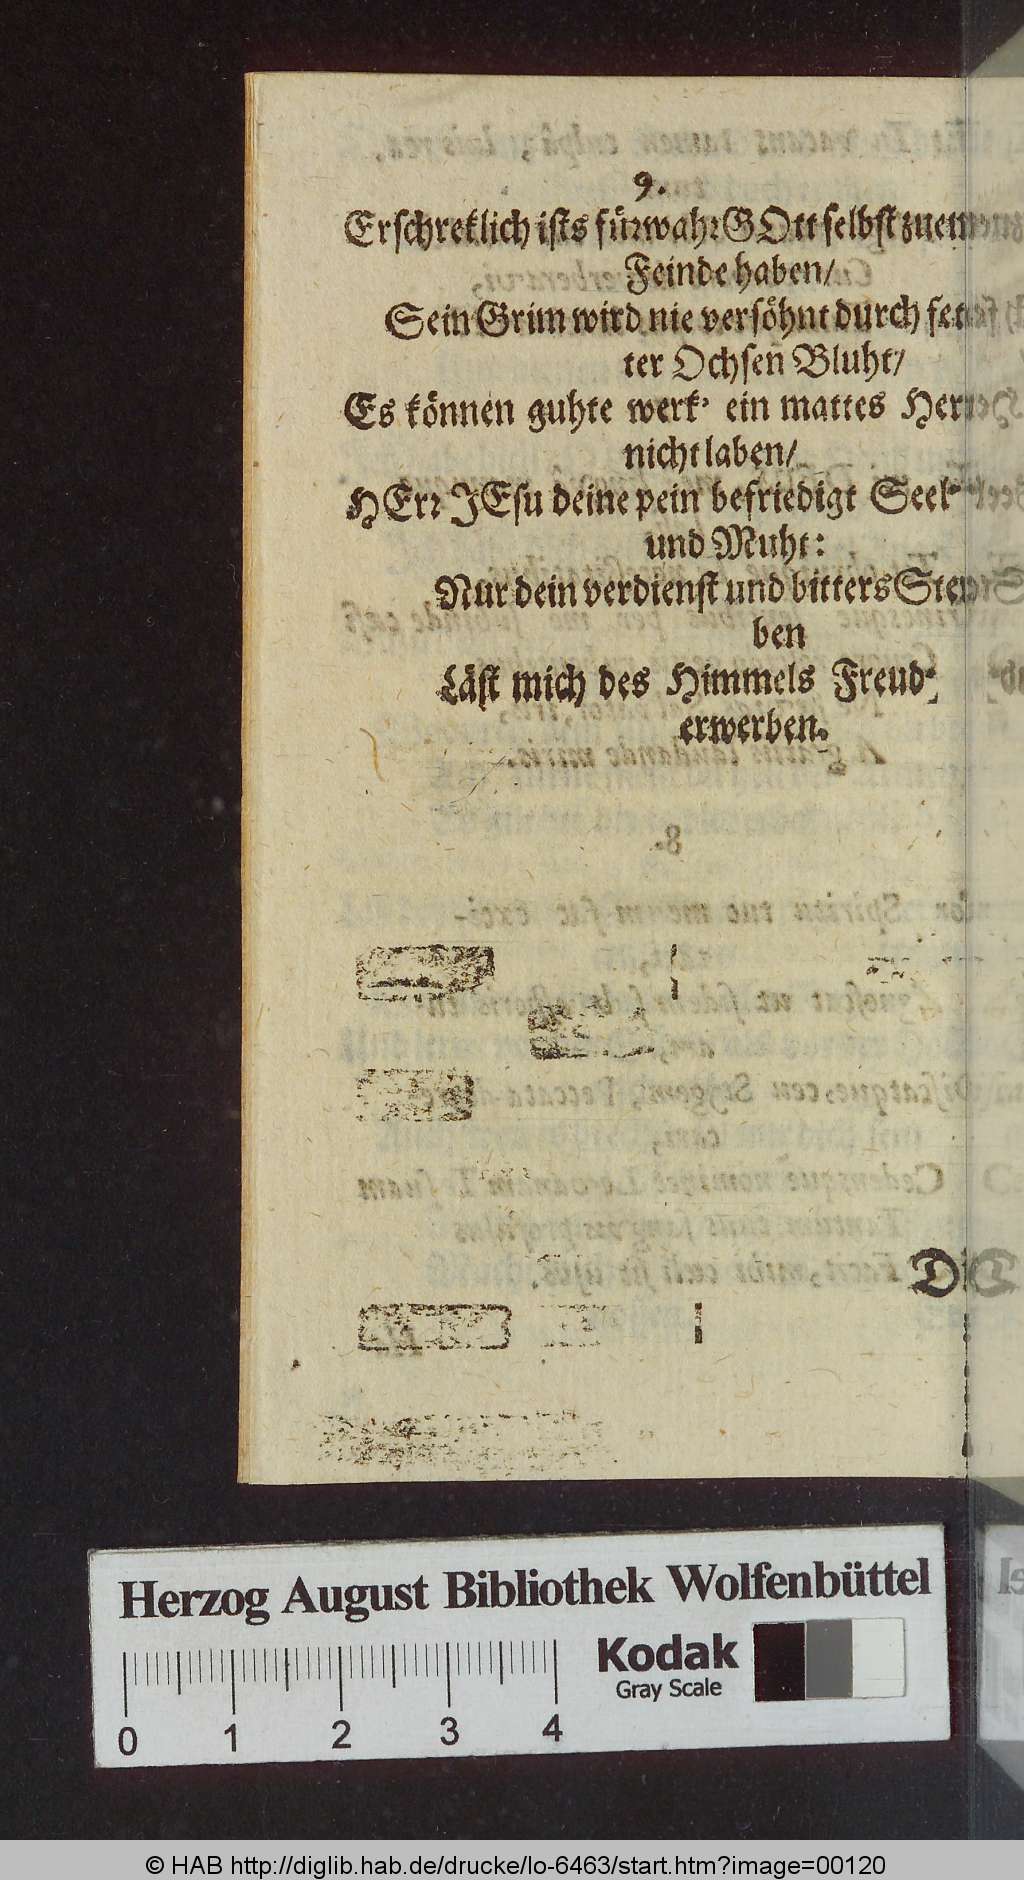 9.
Erschreklich ists fürwahr GOtt selbst zuem
Feinde haben/
Sein Grim wird nie versöhnt durch fet-
ter Ochsen Bluht/
Es können guhte werk' ein mattes Herz
nicht laben/
HErr JEsu deine pein befriedigt Seel'
und Muht:
Nur dein verdienst und bitters Ster-
ben
Läst mich des Himmels Freud'
erwerben.
Di
Herzog August Bibliothek Wolfenbüttel
Kodak
Gray Scale
0 1 2 3 4
© HAB http://diglib.hab.de/drucke/lo-6463/start.htm?image=00120